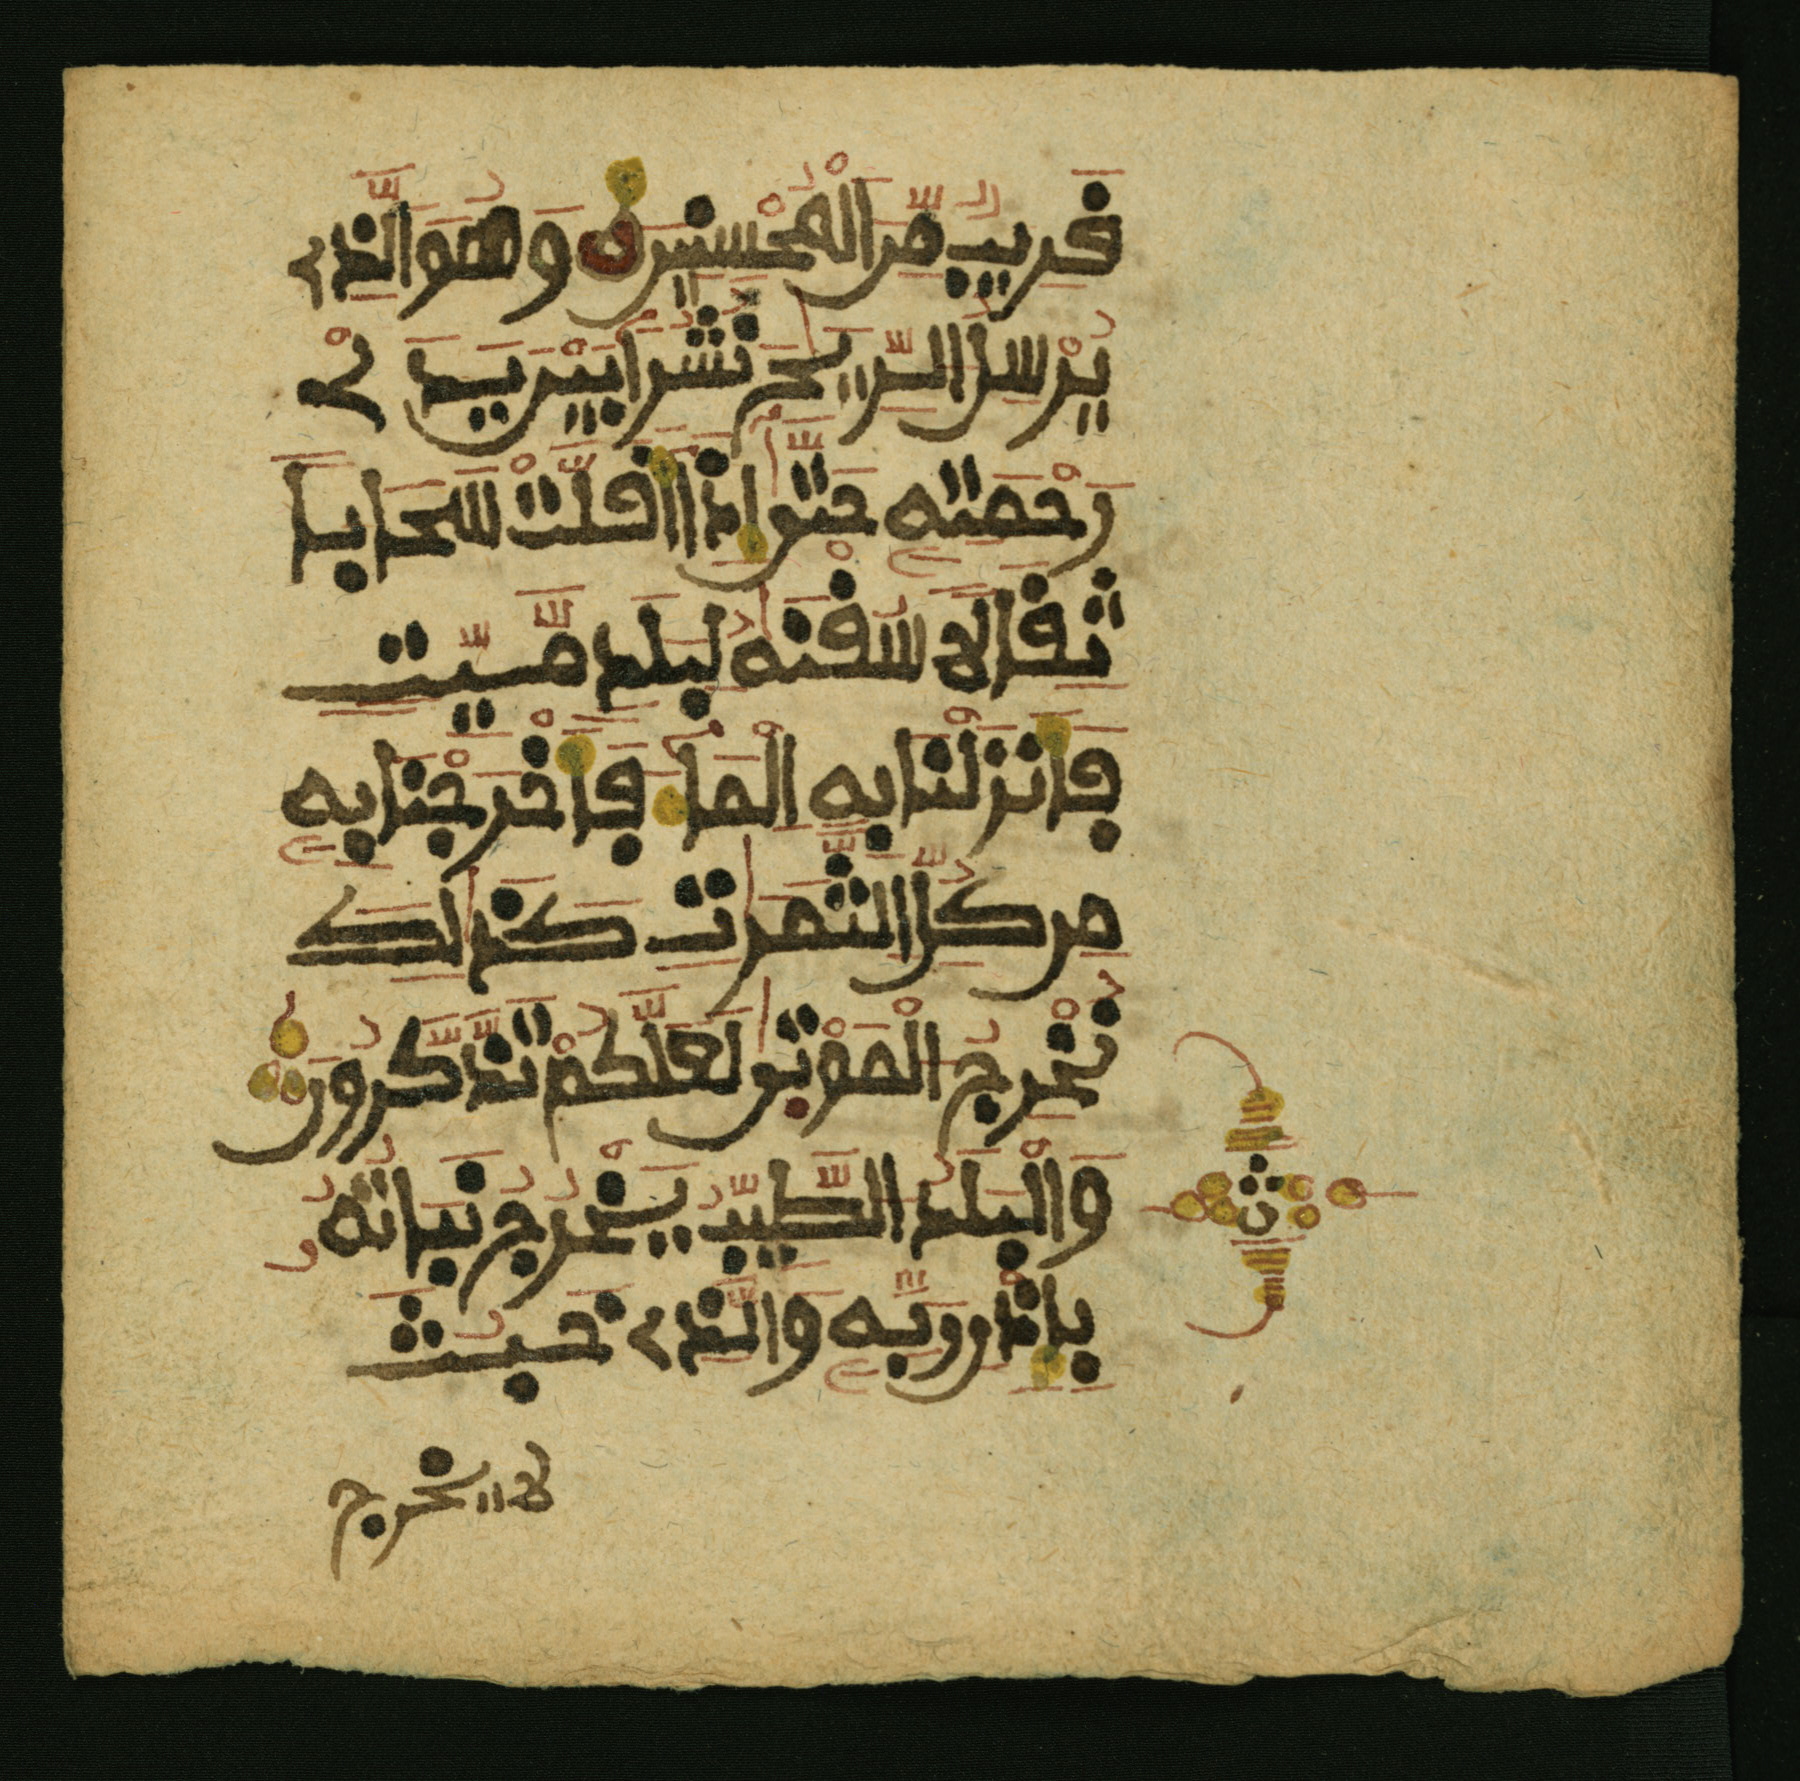 قَرِيبٌ مِّنَ الْمُحْسِنِينَ وَهُوَ الَّذِے
يُرْسِلُ الرِّيَٰحَ نُشُرًا بَيْنَ يَدَےْ
رَحْمَتِهِ حَتَّىٰ إِذَا أَقَلَّتْ سَحَابًا
ثِقَالًا سُقْنَٰهُ لِبَلَدٍ مَّيِّتٍ
فَأَنزَلْنَا بِهِ الْمَاءَ فَأَخْرَجْنَا بِهِ
مِن كُلِّ الثَّمَرَٰتِ كَذَٰلِكَ
نُخْرِجُ الْمَوْتَىٰ لَعَلَّكُمْ تَذَّكَّرُونَ
وَالْبَلَدُ الطَّيِّبُ يَخْرُجُ نَبَاتُهُ
بِإِذْنِ رَبِّهِ وَالَّذِے خَبُثَ
ثُمن
لا يخرج